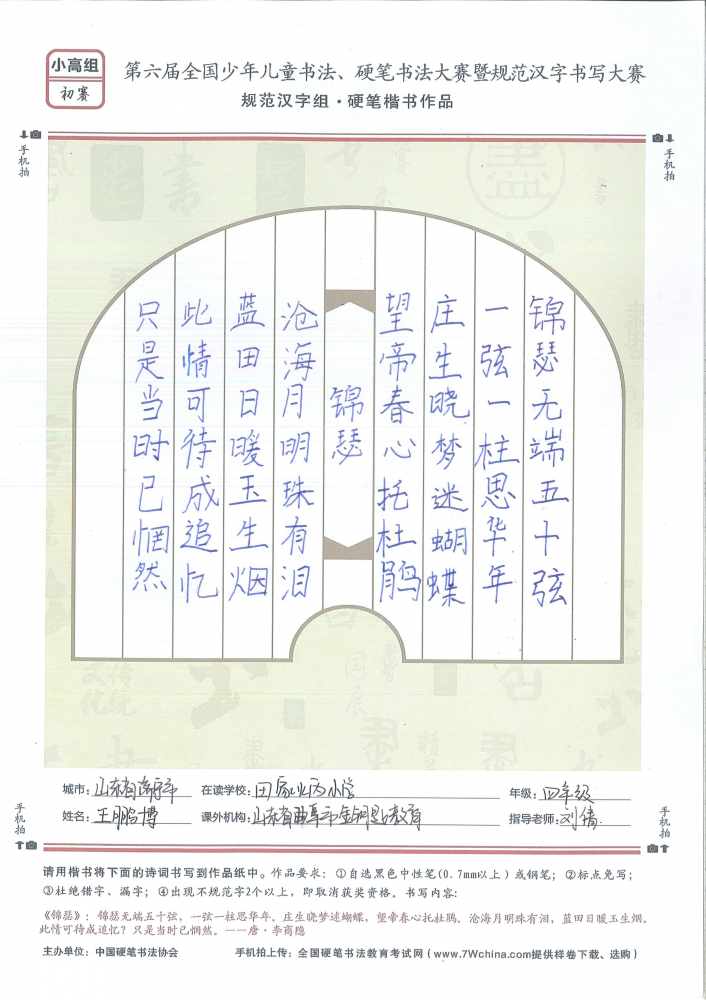 小高组
初赛
第六届全国少年儿童书法、硬笔书法大赛暨规范汉字书写大赛
规范汉字组·硬笔楷书作品
手机拍
手机拍
锦瑟无端五十弦
一弦一柱思华年
庄生晓梦迷蝴蝶
望帝春心托杜鹃
锦瑟
沧海月明珠有泪
蓝田日暖玉生烟
此情可待成追忆
只是当时已惘然
城市：山东省济宁市 在读学校：田家炳小学 年级：四年级
姓名：王鹏博 课外机构：山东省曲阜市金钥匙教育 指导老师：刘倩
手机拍
手机拍
请用楷书将下面的诗词书写到作品纸中。作品要求：①自选黑色中性笔(0.7mm以上）或钢笔；②标点免写；
③杜绝错字、漏字；④出现不规范字2个以上，即取消获奖资格。书写内容：
《锦瑟》：锦瑟无端五十弦，一弦一柱思华年。庄生晓梦迷蝴蝶，望帝春心托杜鹃。沧海月明珠有泪，蓝田日暖玉生烟。
此情可待成追忆？只是当时已惘然。——唐·李商隐
主办单位：中国硬笔书法协会 手机拍上传：全国硬笔书法教育考试网（www.7Wchina.com提供样卷下载、选购）